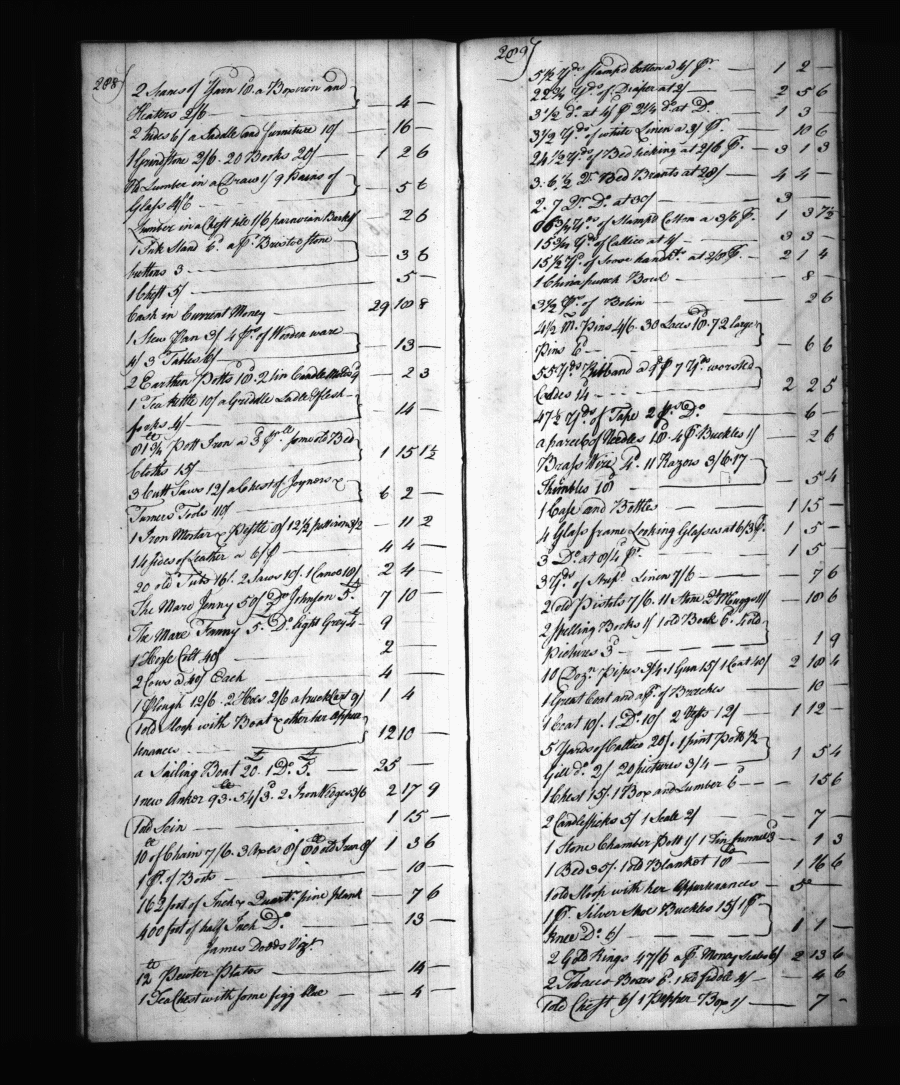 288
2 Seanes of Yarn 18. a Box iron and
Heaters 2/6 4 —
2 Sides 6/ a Saddle and furniture 10/ 16 —
1 Grindstone 2/6. 20 Books 20/ 1 2 6
Lumber in a Draw 1/ 9 Pains of
Glass 4/6 5 6
Lumber in a Chest 1/6 Barks 1/ 2 6
1 Ink Stand 6d. a pr. Bristol stone
buttons 3 3 6
1 Chest 5/ 5 —
Cash in Current Money 29 18 8
1 Stew Pan 3/ 4 Ps. of Wooden ware
4/ 3 Tables 6/ 13 —
2 Earthen Potts 18. 2 tin Candle 2 3
1 Tea Kettle 10/ a Griddle Ladle & flesh
forks 4/ 14 —
Pott Iron a 3d. some old Bed
Cloths 15/ 1 15 1½
3 Cutt Saws 12/ a Chest of Joyners &
Turners Tools 110/ 6 2 —
1 Iron Mortar & Pestle 8/ 3/2 11 2
14 sides of Leather a 6/ p 4 4 —
20 old Tubs 16/. 2 Saws 10/. 1 Canoe 18/ 2 4 —
The Mare Jenny 50/ Do. Johnson 5. 7 10 —
The Mare Fanny 5. Do. light Grey 4 9
1 Horse Colt 40/ 2 —
2 Cows a 40/ Each 4 —
1 Plough 12/6. 2 Hoes 2/6 a truckle 9/ 1 4
1 old Sloop with Boat & other her Appur
tenances 12 10 —
a Sailing Boat 20. 1 Do. 5. 25 —
1 new Anker 93. 5 4/3. 2 Iron Wedges 3/6 2 17 9
1 old Sein 1 15 —
10 of Chain 7/6. 3 Axes 8/ 80 old Iron 8/ 1 3 6
1 P. of Boots 10 —
162 foot of Inch & Quartr. pine plank 7 6
400 foot of half Inch Do. 13 —
James Dodds Vizt.
12 Pewter Plates 14 —
1 Tea Chest with some figg blue 4 —
289
5½ Yds. stamp'd Cotton a 4/ P. 1 2 —
22¾ Yds. of Diaper at 2/ 2 5 6
3½ Do. at 4/ P 2¼ Do. at Do. 1 3
3½ Yds. of white Linen a 3/ P. 10 6
24½ Yds. of Bed ticking at 2/6 P. 3 1 3
3. 6. ½ Dr. Bed at 28/ 4 4 —
2. 7 Dr. Do. at 30/ 3
Yds. of Stamp'd Cotton a 3/6 P. 1 3 7½
15¾ Yds. of Callico at 4/ 3 3 —
15½ Yds. of handk. at 2/8 P. 2 1 4
1 China punch Bowl 8 —
3½ Ps. of Bobin 2 6
4½ M. Pins 4/6. 30 Laces 18. 72 large
Pins 6d. 6 6
55 Yds. Ribband a 9d P 7 Yds. worsted
Caddes 14 2 2 5
47½ Yds. of Tape 2 Ps. Do. 6 —
a parcel of Needles 18. 4 P Buckles 1/ 2 6
Brass Wire 4d. 11 Razors 3/6. 17
Thimbles 10d 5 4
1 Case and Bottles 1 15 —
4 Glass frame Looking Glasses at 6/3 P. 1 5 —
3 Do. at 8/4 P. 1 5 —
3 Yds. of Strip'd Linen 7/6 7 6
2 old Pistols 7/6. 11 Stone Muggs 11/ 18 6
2 spelling Books 1/ 1 old Book 6d. 4 old
Pictures 3d. 1 9
10 Dozn. Pipes 3/4. 1 Gun 15/ 1 Coat 40/ 2 18 4
1 Great Coat and a P. of Breeches 10 —
1 Coat 10/. 1 Do. 10/ 2 Vests 12/ 1 12 —
5 Yards of Callico 20/. 1 pint Pott ½
Gill Do. 2/ 20 pictures 3/4 1 5 4
1 Chest 15/. 1 Box and Lumber 6d. 15 6
2 Candlesticks 5/ 1 Scale 2/ 7 —
1 Stone Chamber Pott 1/ 1 Tin funnel 3 1 3
1 Bed 35/. 1 old Blanket 18 1 16 6
1 old Sloop with her Appurtenances 50 —
1 P. Silver Shoe Buckles 15/ 1 P.
Knee Do. 6/ 1 1 —
2 Gold Rings 47/6 a P. Money Scales 6/ 2 13 6
2 Tobacco Boxes 6d. 1 old fiddle 4/ 4 6
1 old Chest 6/ 1 Pepper Box 1/ 7 —